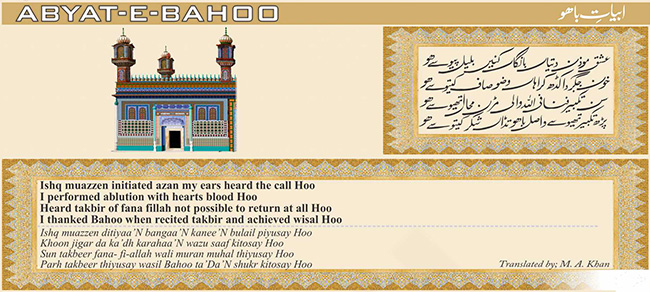 ABYAT-E-BAHOO
ابیاتِ باھو
عشق موذن دتیاں بانگاں کنیں بلیل پیوسے ھو
خونِ جگر دا کڈھ کراہاں وضو صاف کیتوسے ھو
سن تکبیر فنا فی اللہ والی مڑن محال تھیوسے ھو
پڑھ تکبیر تھیوسے واصل باھو تداں شکر کیتوسے ھو
Ishq muazzen initiated azan my ears heard the call Hoo
I performed ablution with hearts blood Hoo
Heard takbir of fana fillah not possible to return at all Hoo
I thanked Bahoo when recited takbir and achieved wisal Hoo
Ishq muazzen ditiyaa'N bangaa'N kanee'N bulail piyusay Hoo
Khoon jigar da ka'dh karahaa'N wazu saaf kitosay Hoo
Sun takbeer fana- fi-allah wali muran muhal thiyusay Hoo
Parh takbeer thiyusay wasil Bahoo ta'Da'N shukr kitosay Hoo
Translated by; M. A. Khan